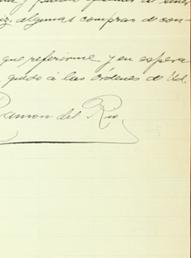 algunas compras de con-
que referirme y en espera
quedo á las órdenes de Ud.
Ramon del Rio